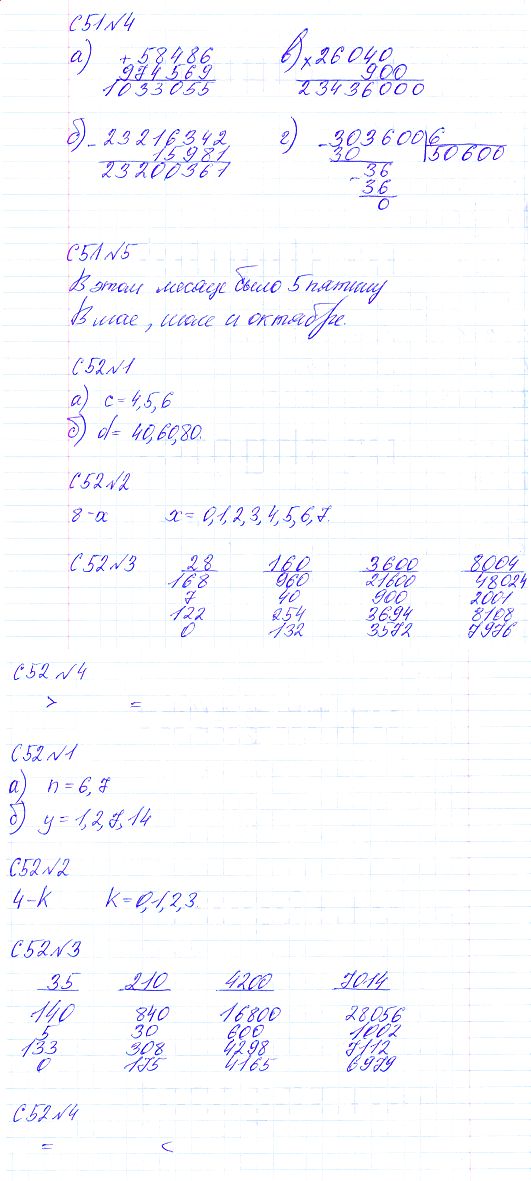 С51№4
а) + 58486 в) × 26040
974569 900
1033055 23436000
б) - 23216342 г) - 303600 6
15981 30 50600
23200361 - 36
36
0
С51№5
В этом месяце было 5 пятниц
В мае, июле и октябре.
С52№1
а) c = 4,5,6
б) d = 40,60,80.
С52№2
8-x x = 0,1,2,3,4,5,6,7.
С52№3 28 160 3600 8004
168 960 21600 48024
7 40 900 2001
122 254 3694 8108
0 132 3572 7976
С52№4
> =
С52№1
а) n = 6,7
б) y = 1,2,7,14
С52№2
4-k k = 0,1,2,3.
С52№3
35 210 4200 7014
140 840 16800 28056
5 30 600 1002
133 308 4298 7112
0 175 4165 6979
С52№4
= <